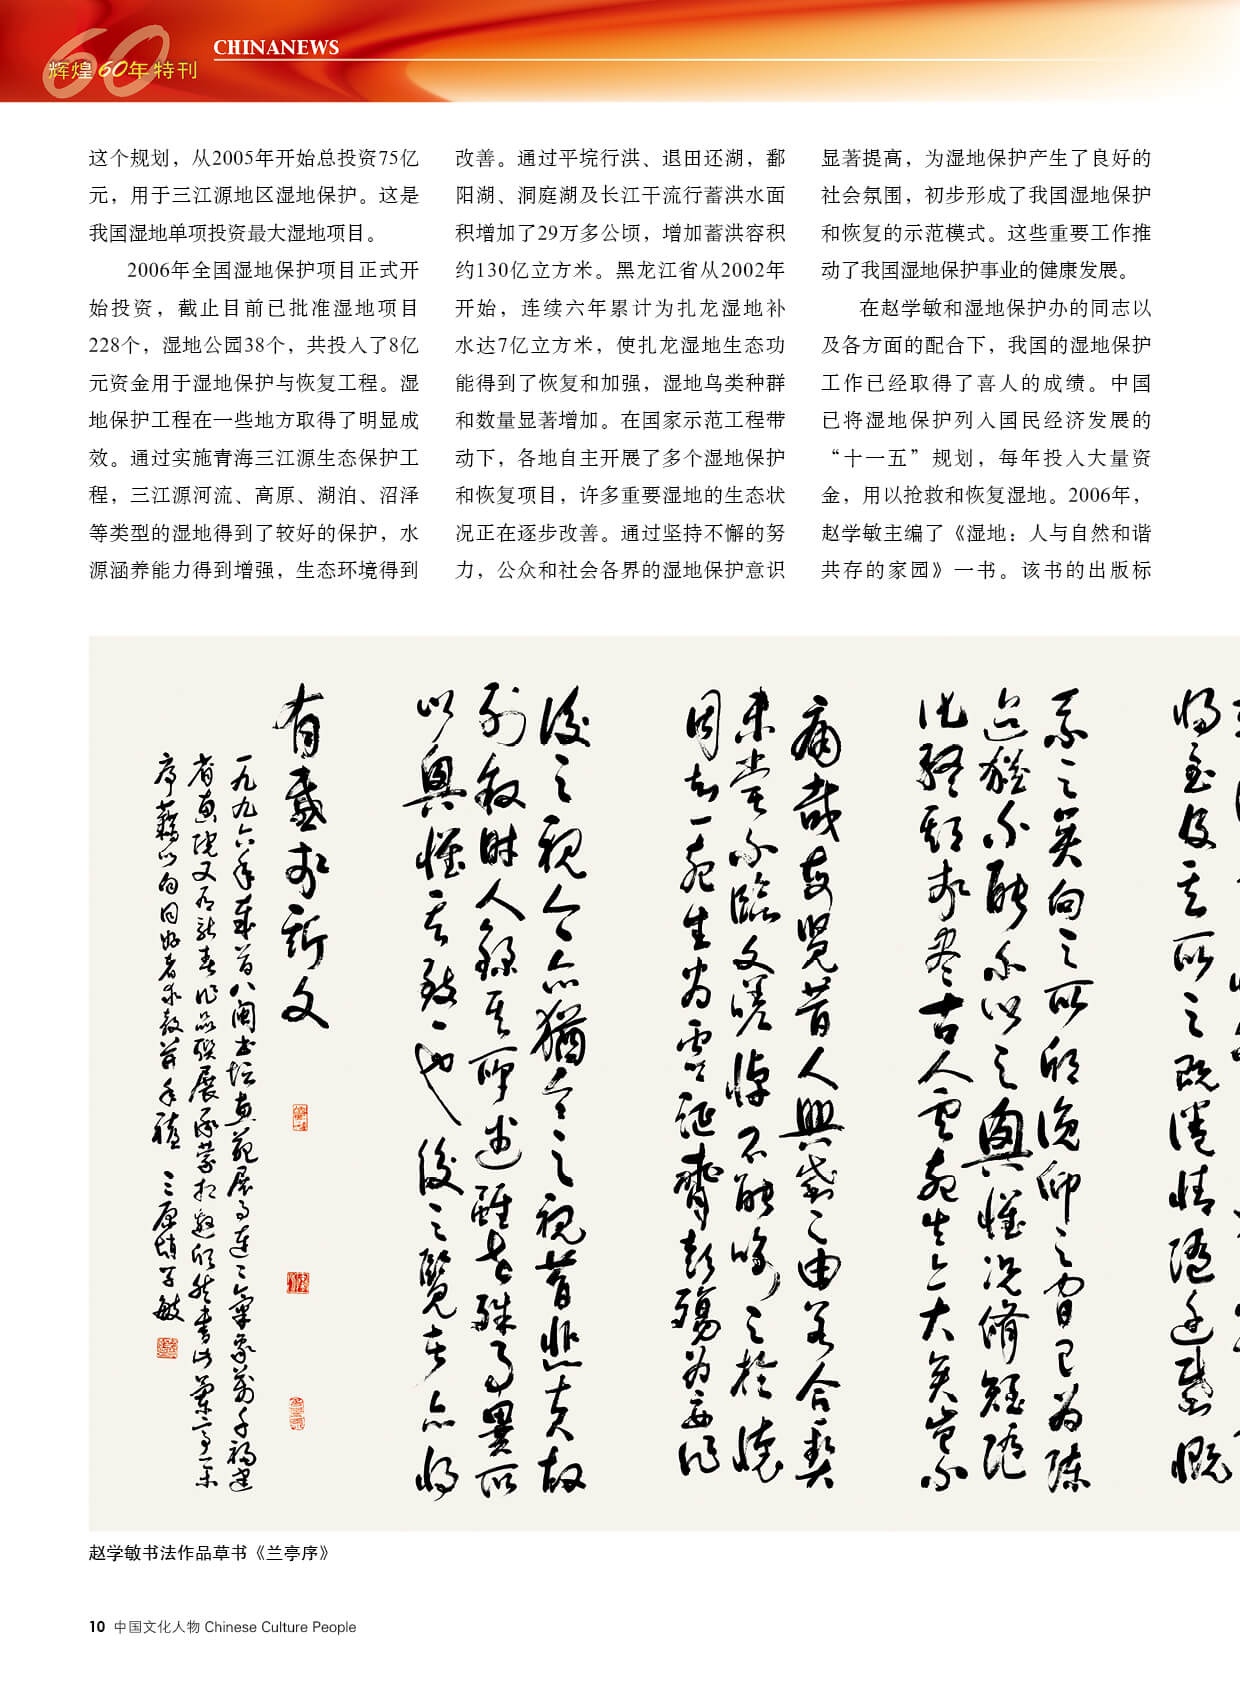 CHINANEWS
辉煌60年特刊
这个规划，从2005年开始总投资75亿
元，用于三江源地区湿地保护。这是
我国湿地单项投资最大湿地项目。
2006年全国湿地保护项目正式开
始投资，截止目前已批准湿地项目
228个，湿地公园38个，共投入了8亿
元资金用于湿地保护与恢复工程。湿
地保护工程在一些地方取得了明显成
效。通过实施青海三江源生态保护工
程，三江源河流、高原、湖泊、沼泽
等类型的湿地得到了较好的保护，水
源涵养能力得到增强，生态环境得到
改善。通过平垸行洪、退田还湖，鄱
阳湖、洞庭湖及长江干流行蓄洪水面
积增加了29万多公顷，增加蓄洪容积
约130亿立方米。黑龙江省从2002年
开始，连续六年累计为扎龙湿地补
水达7亿立方米，使扎龙湿地生态功
能得到了恢复和加强，湿地鸟类种群
和数量显著增加。在国家示范工程带
动下，各地自主开展了多个湿地保护
和恢复项目，许多重要湿地的生态状
况正在逐步改善。通过坚持不懈的努
力，公众和社会各界的湿地保护意识
显著提高，为湿地保护产生了良好的
社会氛围，初步形成了我国湿地保护
和恢复的示范模式。这些重要工作推
动了我国湿地保护事业的健康发展。
在赵学敏和湿地保护办的同志以
及各方面的配合下，我国的湿地保护
工作已经取得了喜人的成绩。中国
已将湿地保护列入国民经济发展的
“十一五”规划，每年投入大量资
金，用以抢救和恢复湿地。2006年，
赵学敏主编了《湿地：人与自然和谐
共存的家园》一书。该书的出版标
將至及其所之既倦情隨遷感慨
系之矣向之所欣俛仰之間已為陳
迹猶不能不以之興懷況脩短隨
化終期於盡古人云死生亦大矣豈不
痛哉每覽昔人興感之由若合一契
未嘗不臨文嗟悼不能喻之於懷
固知一死生為虛誕齊彭殤為妄作
後之視今亦猶今之視昔悲夫故
列敘時人錄其所述雖世殊事異所
以興懷其致一也後之覽者亦將
有感於斯文
赵学敏书法作品草书《兰亭序》
10 中国文化人物 Chinese Culture People